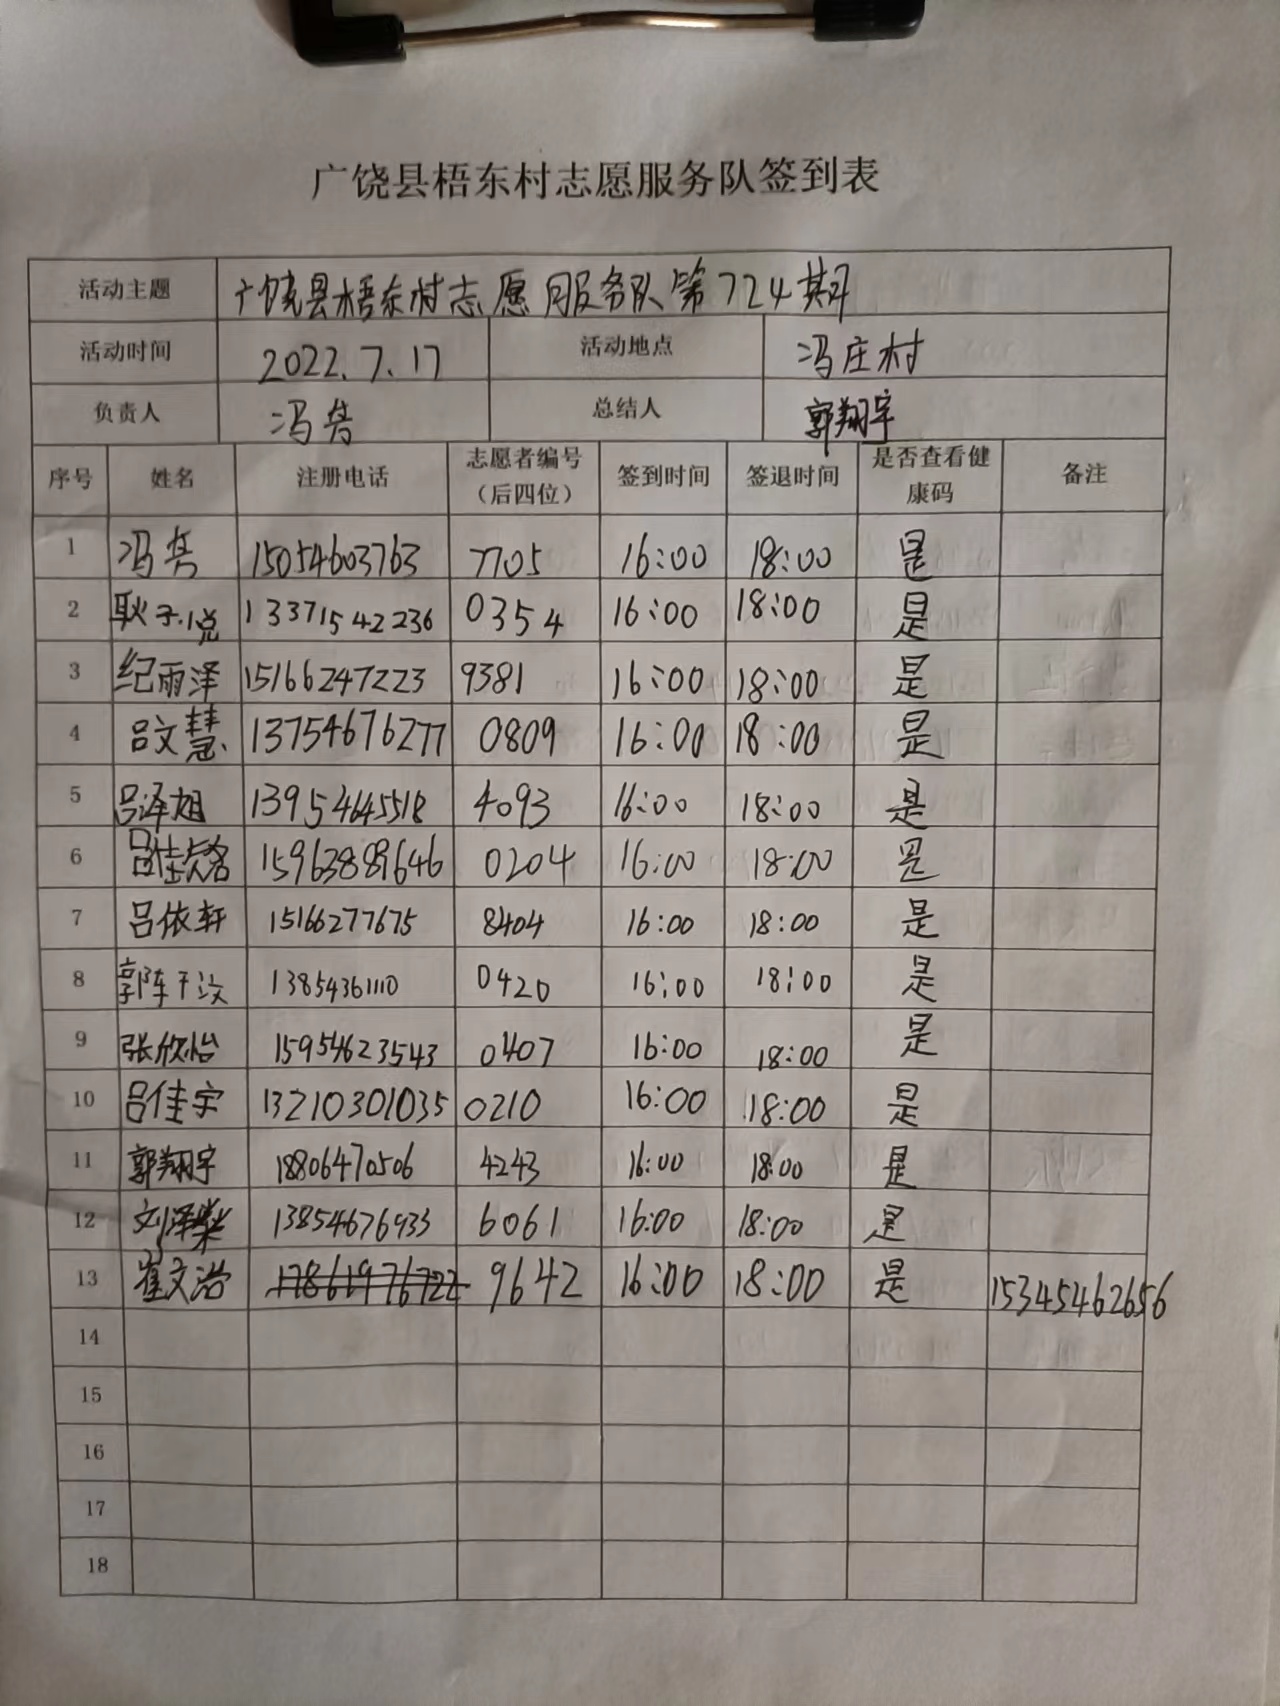 广饶县梧东村志愿服务队签到表
活动主题 广饶县梧东村志愿服务队第724期
活动时间 2022.7.17 活动地点 冯庄村
负责人 冯 总结人 郭翔宇
序号 姓名 注册电话 志愿者编号（后四位） 签到时间 签退时间 是否查看健康码 备注
1 冯 15054603763 7705 16:00 18:00 是
2 耿子悦 13371542236 0354 16:00 18:00 是
3 纪雨泽 15166247223 9381 16:00 18:00 是
4 吕文慧 13754676277 0809 16:00 18:00 是
5 吕泽旭 13954645518 4093 16:00 18:00 是
6 吕佳 15963889646 0204 16:00 18:00 是
7 吕依轩 15166277675 8404 16:00 18:00 是
8 郭 13854361110 0420 16:00 18:00 是
9 张欣怡 15954623543 0407 16:00 18:00 是
10 吕佳宇 13210301035 0210 16:00 18:00 是
11 郭翔宇 18806470506 4243 16:00 18:00 是
12 刘泽 13854676933 6061 16:00 18:00 是
13 崔文浩 17861976722 9642 16:00 18:00 是 15345462656
14
15
16
17
18